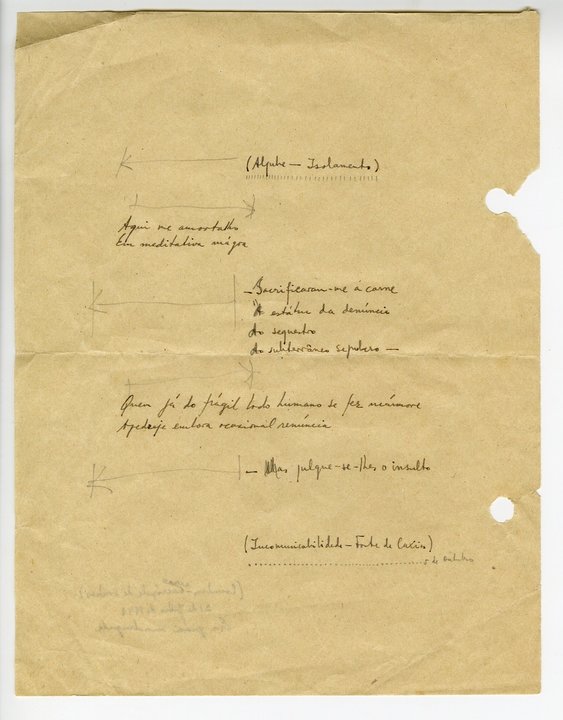 (Aljube — Isolamento)
Aqui me amortalho
Em meditativa mágoa
— Sacrificaram-me a carne
À estátua da denúncia
Ao sequestro
Ao subterrâneo sepulcro —
Quem já do frágil lodo humano se fez mármore
Apedreje embora ocasional renúncia
— Mas julgue-se-lhes o insulto
(Incomunicabilidade — Forte de Caxias)
5 de outubro